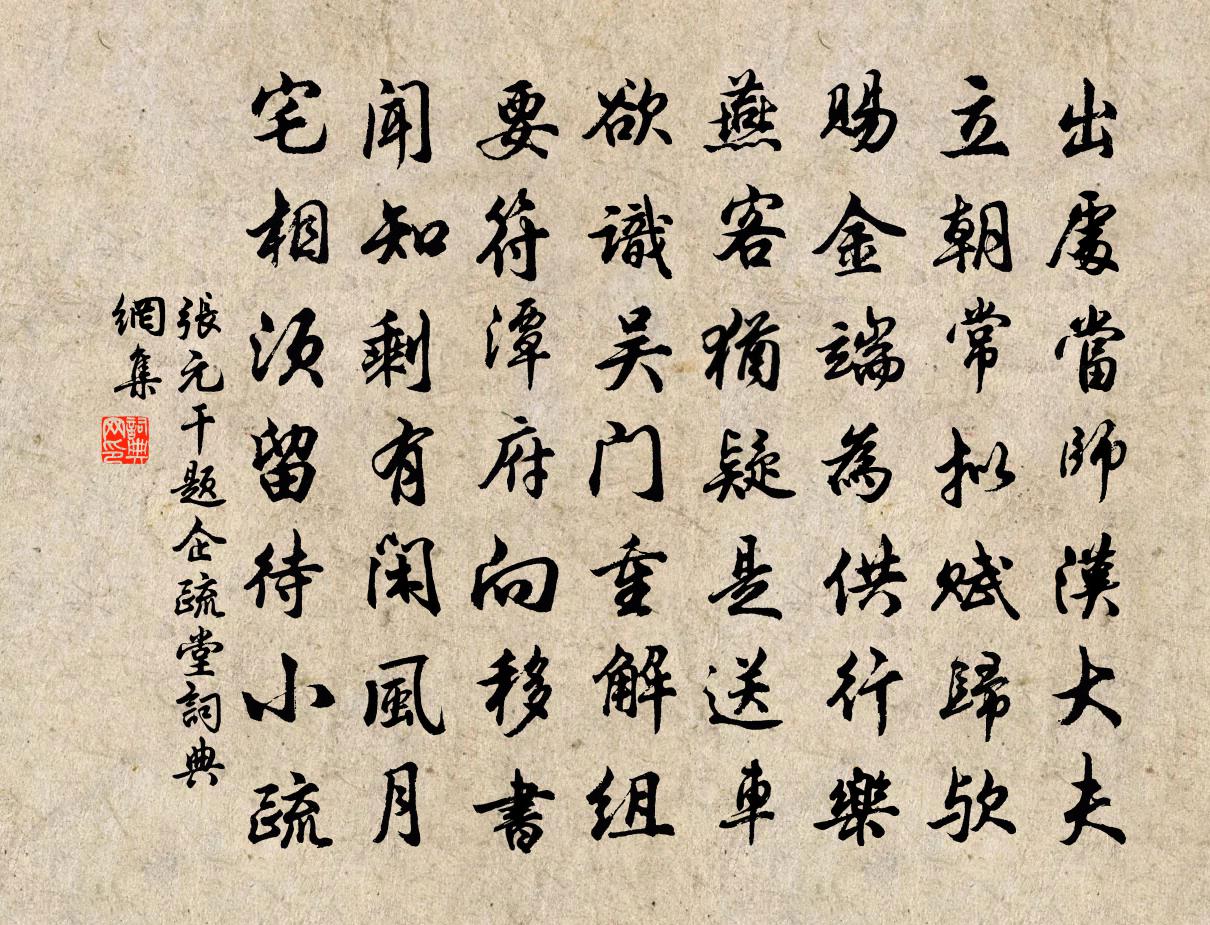 出處當師漢大夫
立朝常拟賦歸歟
賜金端為供行樂
燕客猶疑是送車
欲識吴门重解組
要符潭府向移書
聞知剩有閑風月
宅相须留待小疏
張元干题企疏堂詞典
網集
詞典
网印